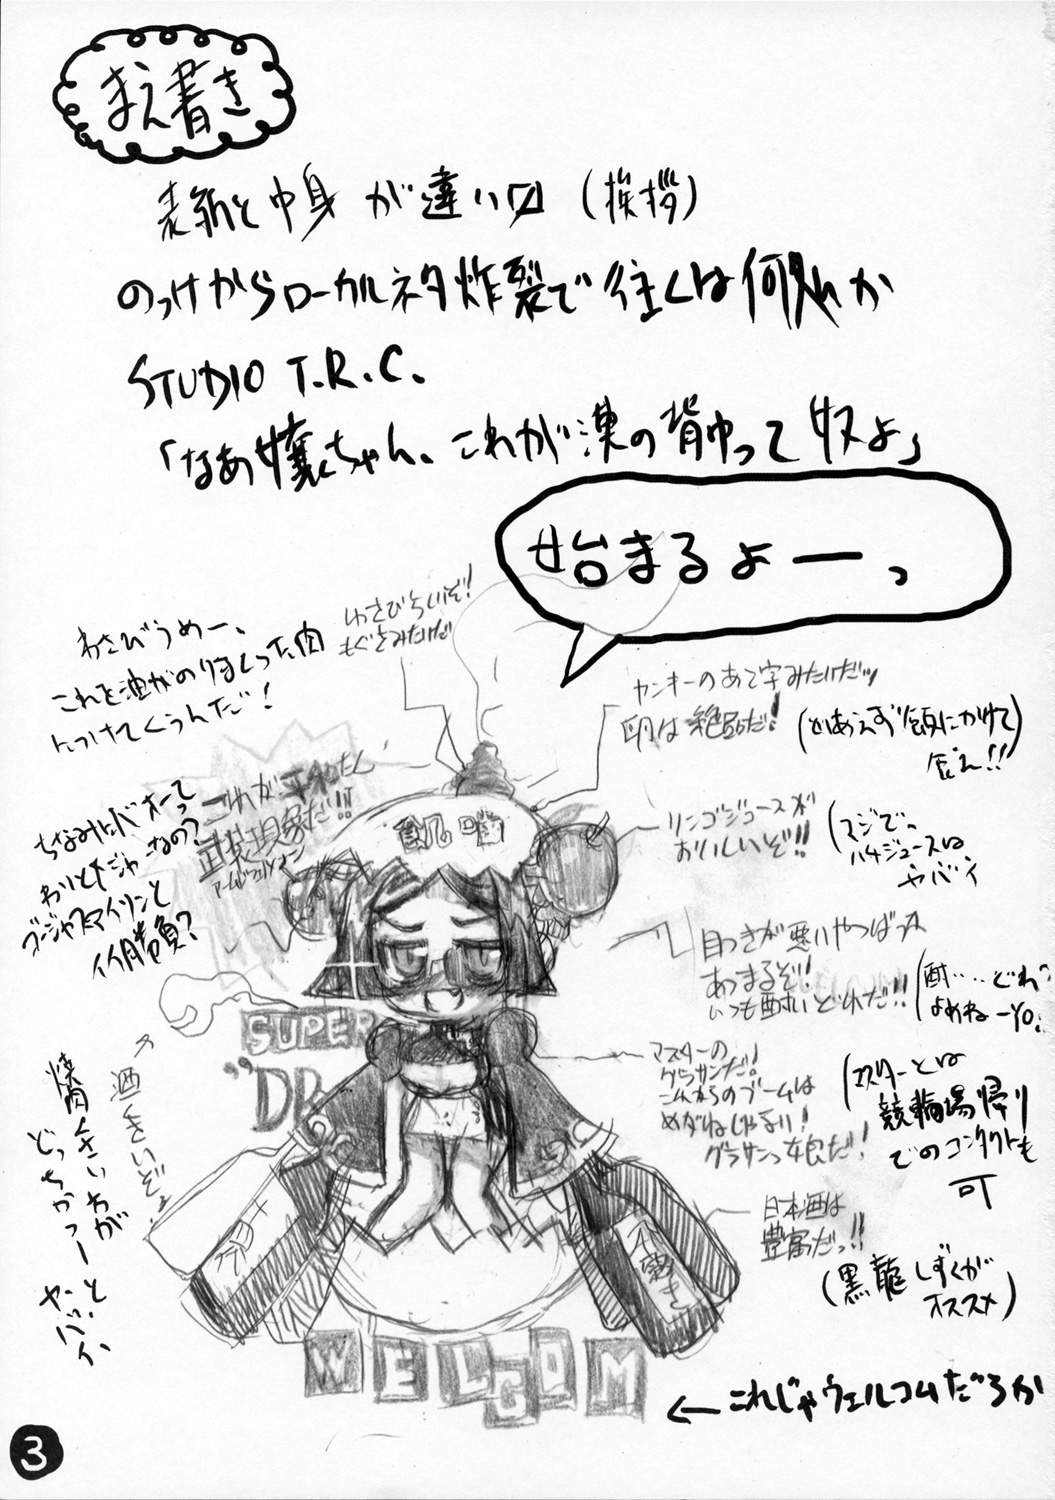 まえ書き
表紙と中身が違い〼(挨拶)
のっけからローカルネタ炸裂で往くは何処か
STUDIO T.R.C.
「なあ嬢ちゃん、これが漢の背中って奴よ」
始まるよーっ
わさびうめー、
これを油がのりまくった肉
につけてくうんだ!
わさびちいいぞ!
もぐさみたいだ
ヤンキーのあて字みたいだッ
卵は絶品だ!
(とりあえず飯にかけて
食え!!)
これが平和たん
武装現象だ!!
飢喃
リンゴジュースが
おいしいぞ!!
(マジで。
ハチジュースは
ヤバイ
ちなみにバオーって
わりとメジャーなの?
ゴージャスアイリンと
イイ勝負?
目つきが悪いやつばっか
あつまるぞ!
いつも酔いどれだ!!
(酔……どれ?
よめねーYO!
SUPER
"DR
マスターの
グラサンだ!
これからのブームは
めがねじゃない!
グラサンっ娘だ!
(マスターとは
競輪場帰り
でのコンタクトも
可
酒くさいぞ。
焼肉くさいわが
どっちかっーと。
ヤバイ
日本酒は
豊富だっ!!
(黒龍しずくが
オススメ)
WELCOM
←これじゃウェルコムだろが
3